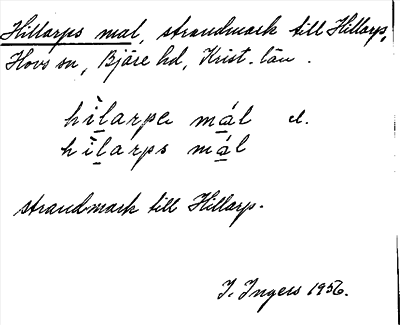 Hillarps mal, strandmark till Hillarp,
Hovs sn, Bjäre hd, Krist. län.
hìlarpa mál el.
hìlarps mál
strandmark till Hillarp.
I. Ingers 1956.